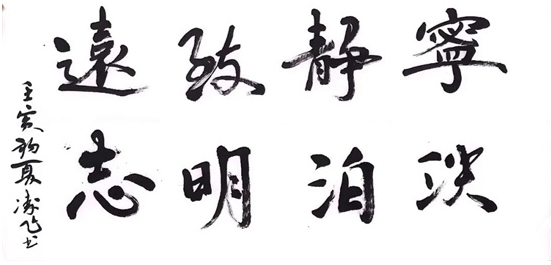 寧靜致遠
淡泊明志
壬寅初夏书